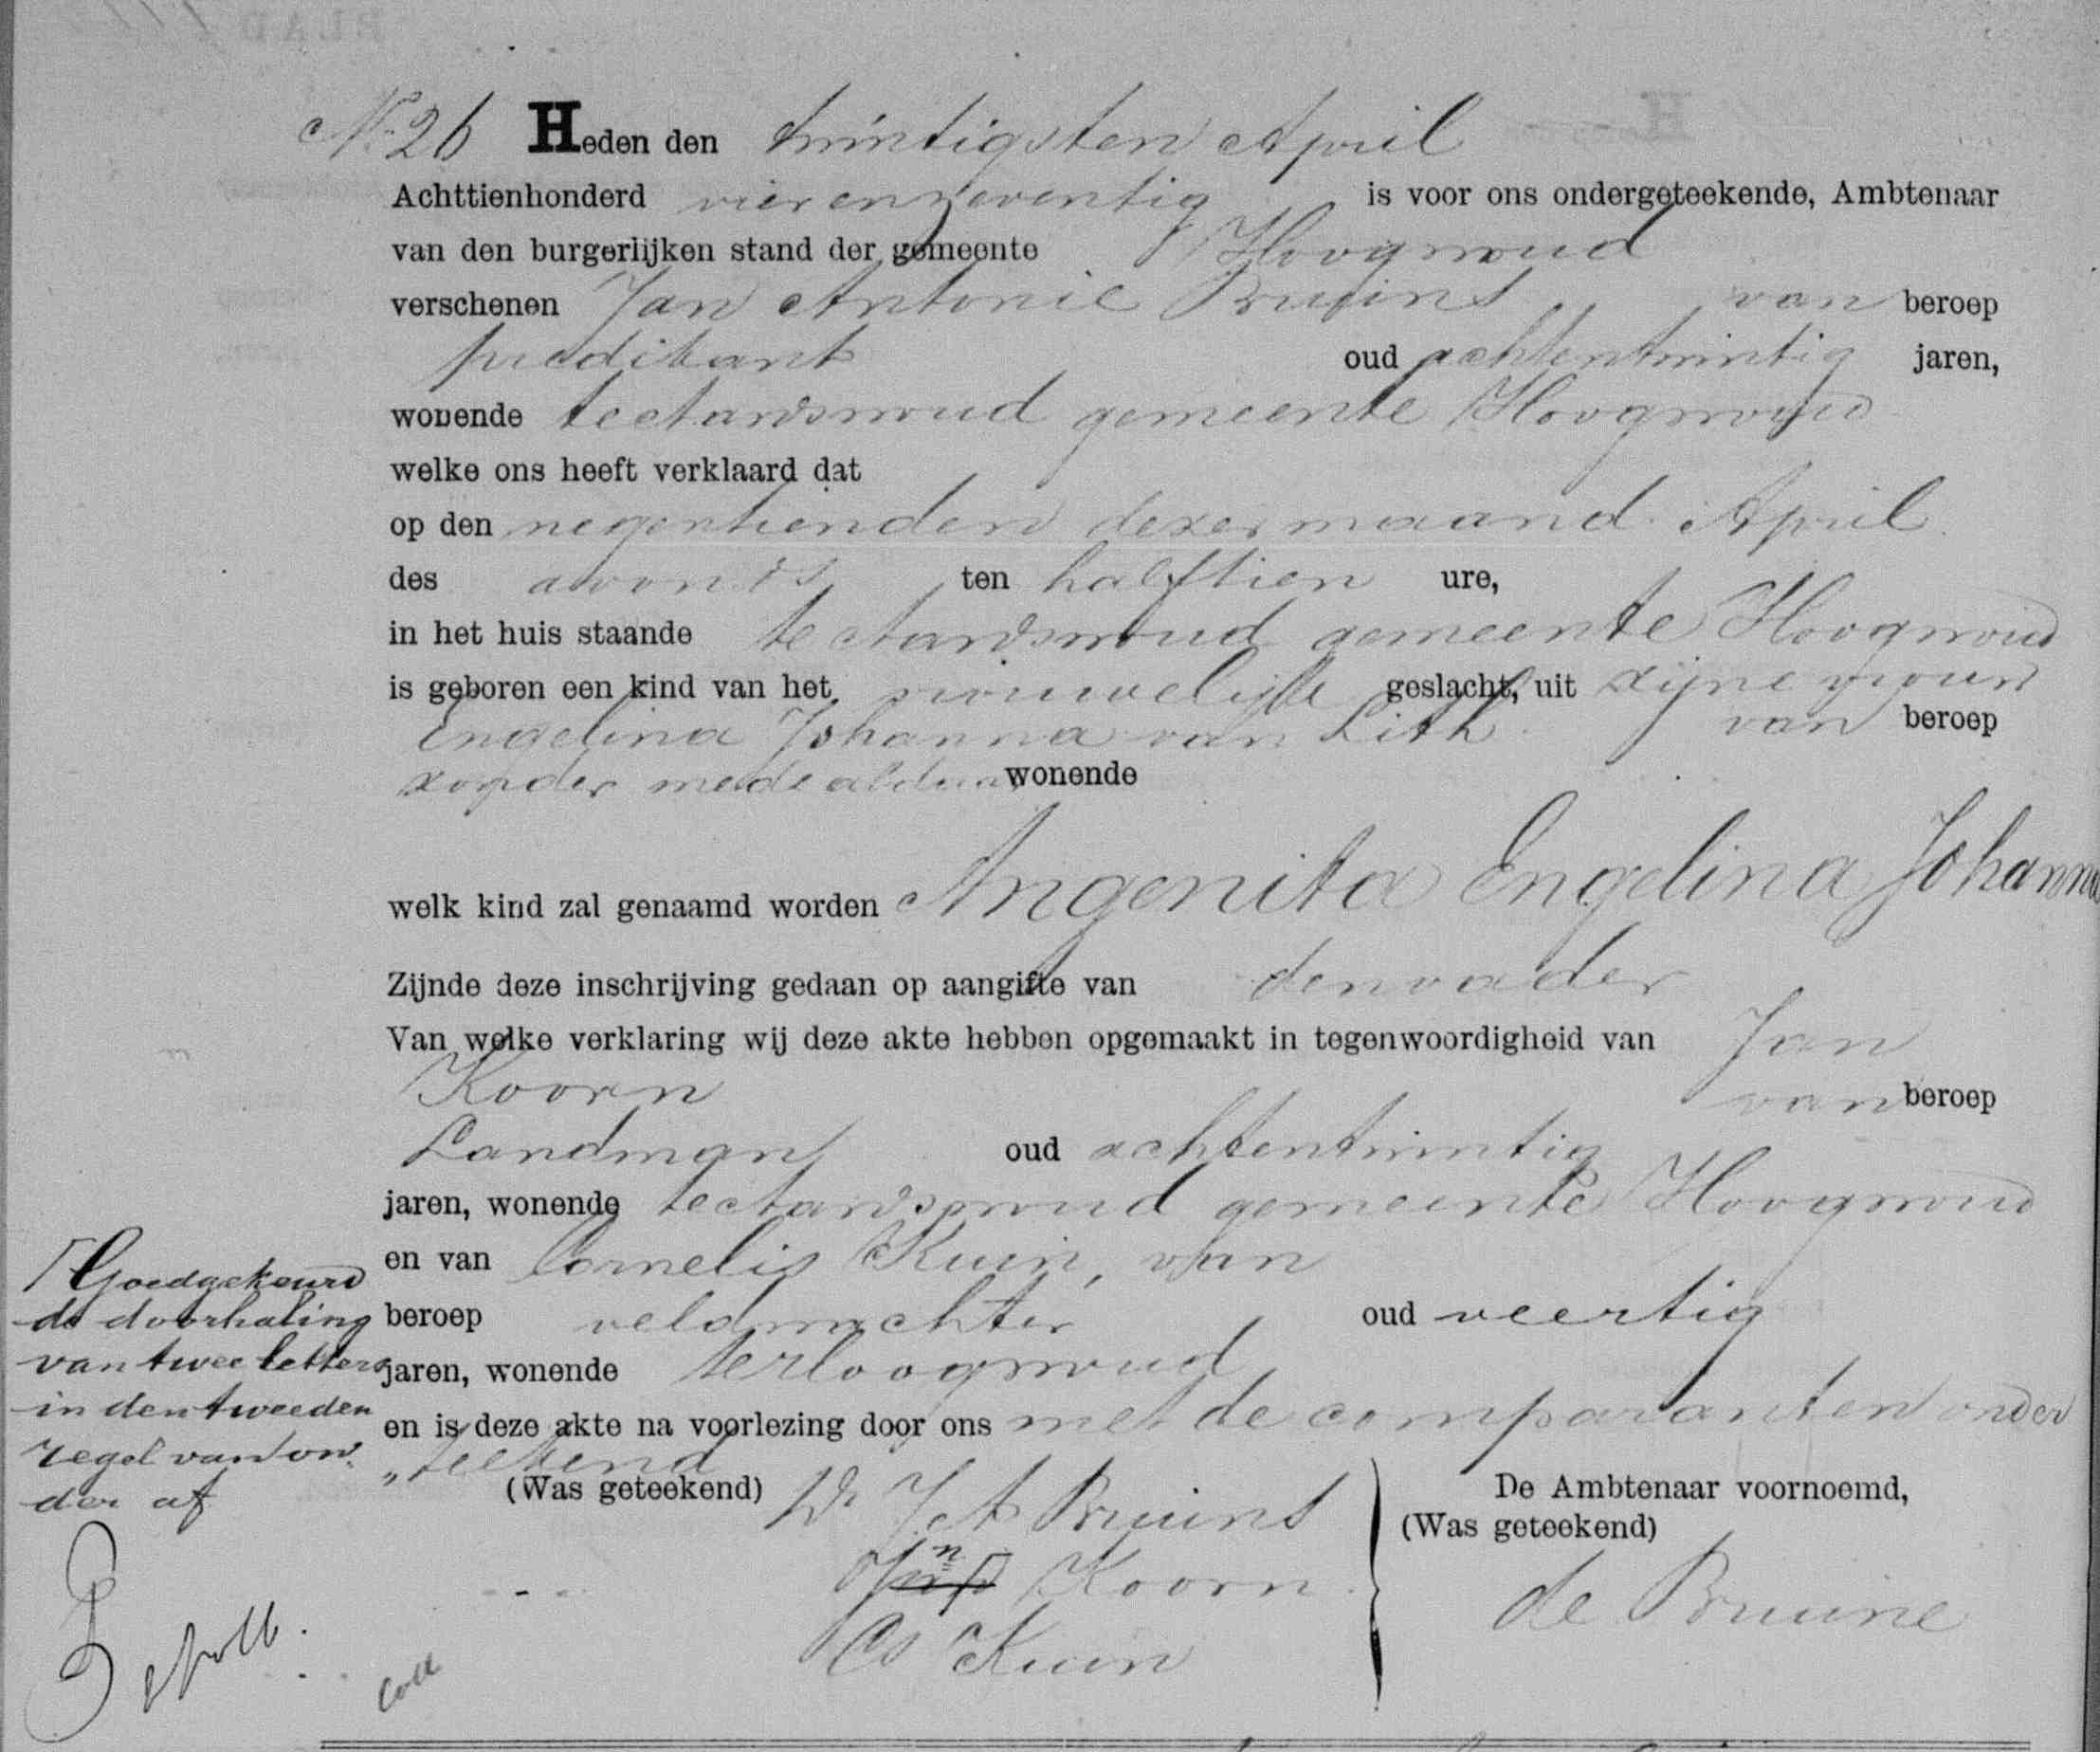 No 26 Heden den twintigsten April
Achttienhonderd vierenzeventig is voor ons ondergeteekende, Ambtenaar
van den burgerlijken stand der gemeente Hoogwoud
verschenen Jan Antonie Bruins van beroep
predikant oud achtentwintig jaren,
wonende te Aartswoud gemeente Hoogwoud
welke ons heeft verklaard dat
op den negentienden dezer maand April
des avonds ten halftien ure,
in het huis staande te Aartswoud gemeente Hoogwoud
is geboren een kind van het vrouwelijk geslacht, uit zijne vrouw
Engelina Johanna van Lith van beroep
zonder mede aldaar wonende
welk kind zal genaamd worden Angenita Engelina Johanna
Zijnde deze inschrijving gedaan op aangifte van den vader
Van welke verklaring wij deze akte hebben opgemaakt in tegenwoordigheid van Jan
Koorn van beroep
Landman oud achtentwintig
jaren, wonende te Aartswoud gemeente Hoogwoud
en van Cornelis Kuin, van
beroep veldwachter oud veertig
jaren, wonende te Hoogwoud
en is deze akte na voorlezing door ons met de comparanten onder
„teekend
(Was geteekend) J A Bruins
Jn Koorn
Cs Kuin
De Ambtenaar voornoemd,
(Was geteekend)
de Bruine
Goedgekeurd
de doorhaling
van twee letters
in den tweeden
regel van on„
der af
Coll